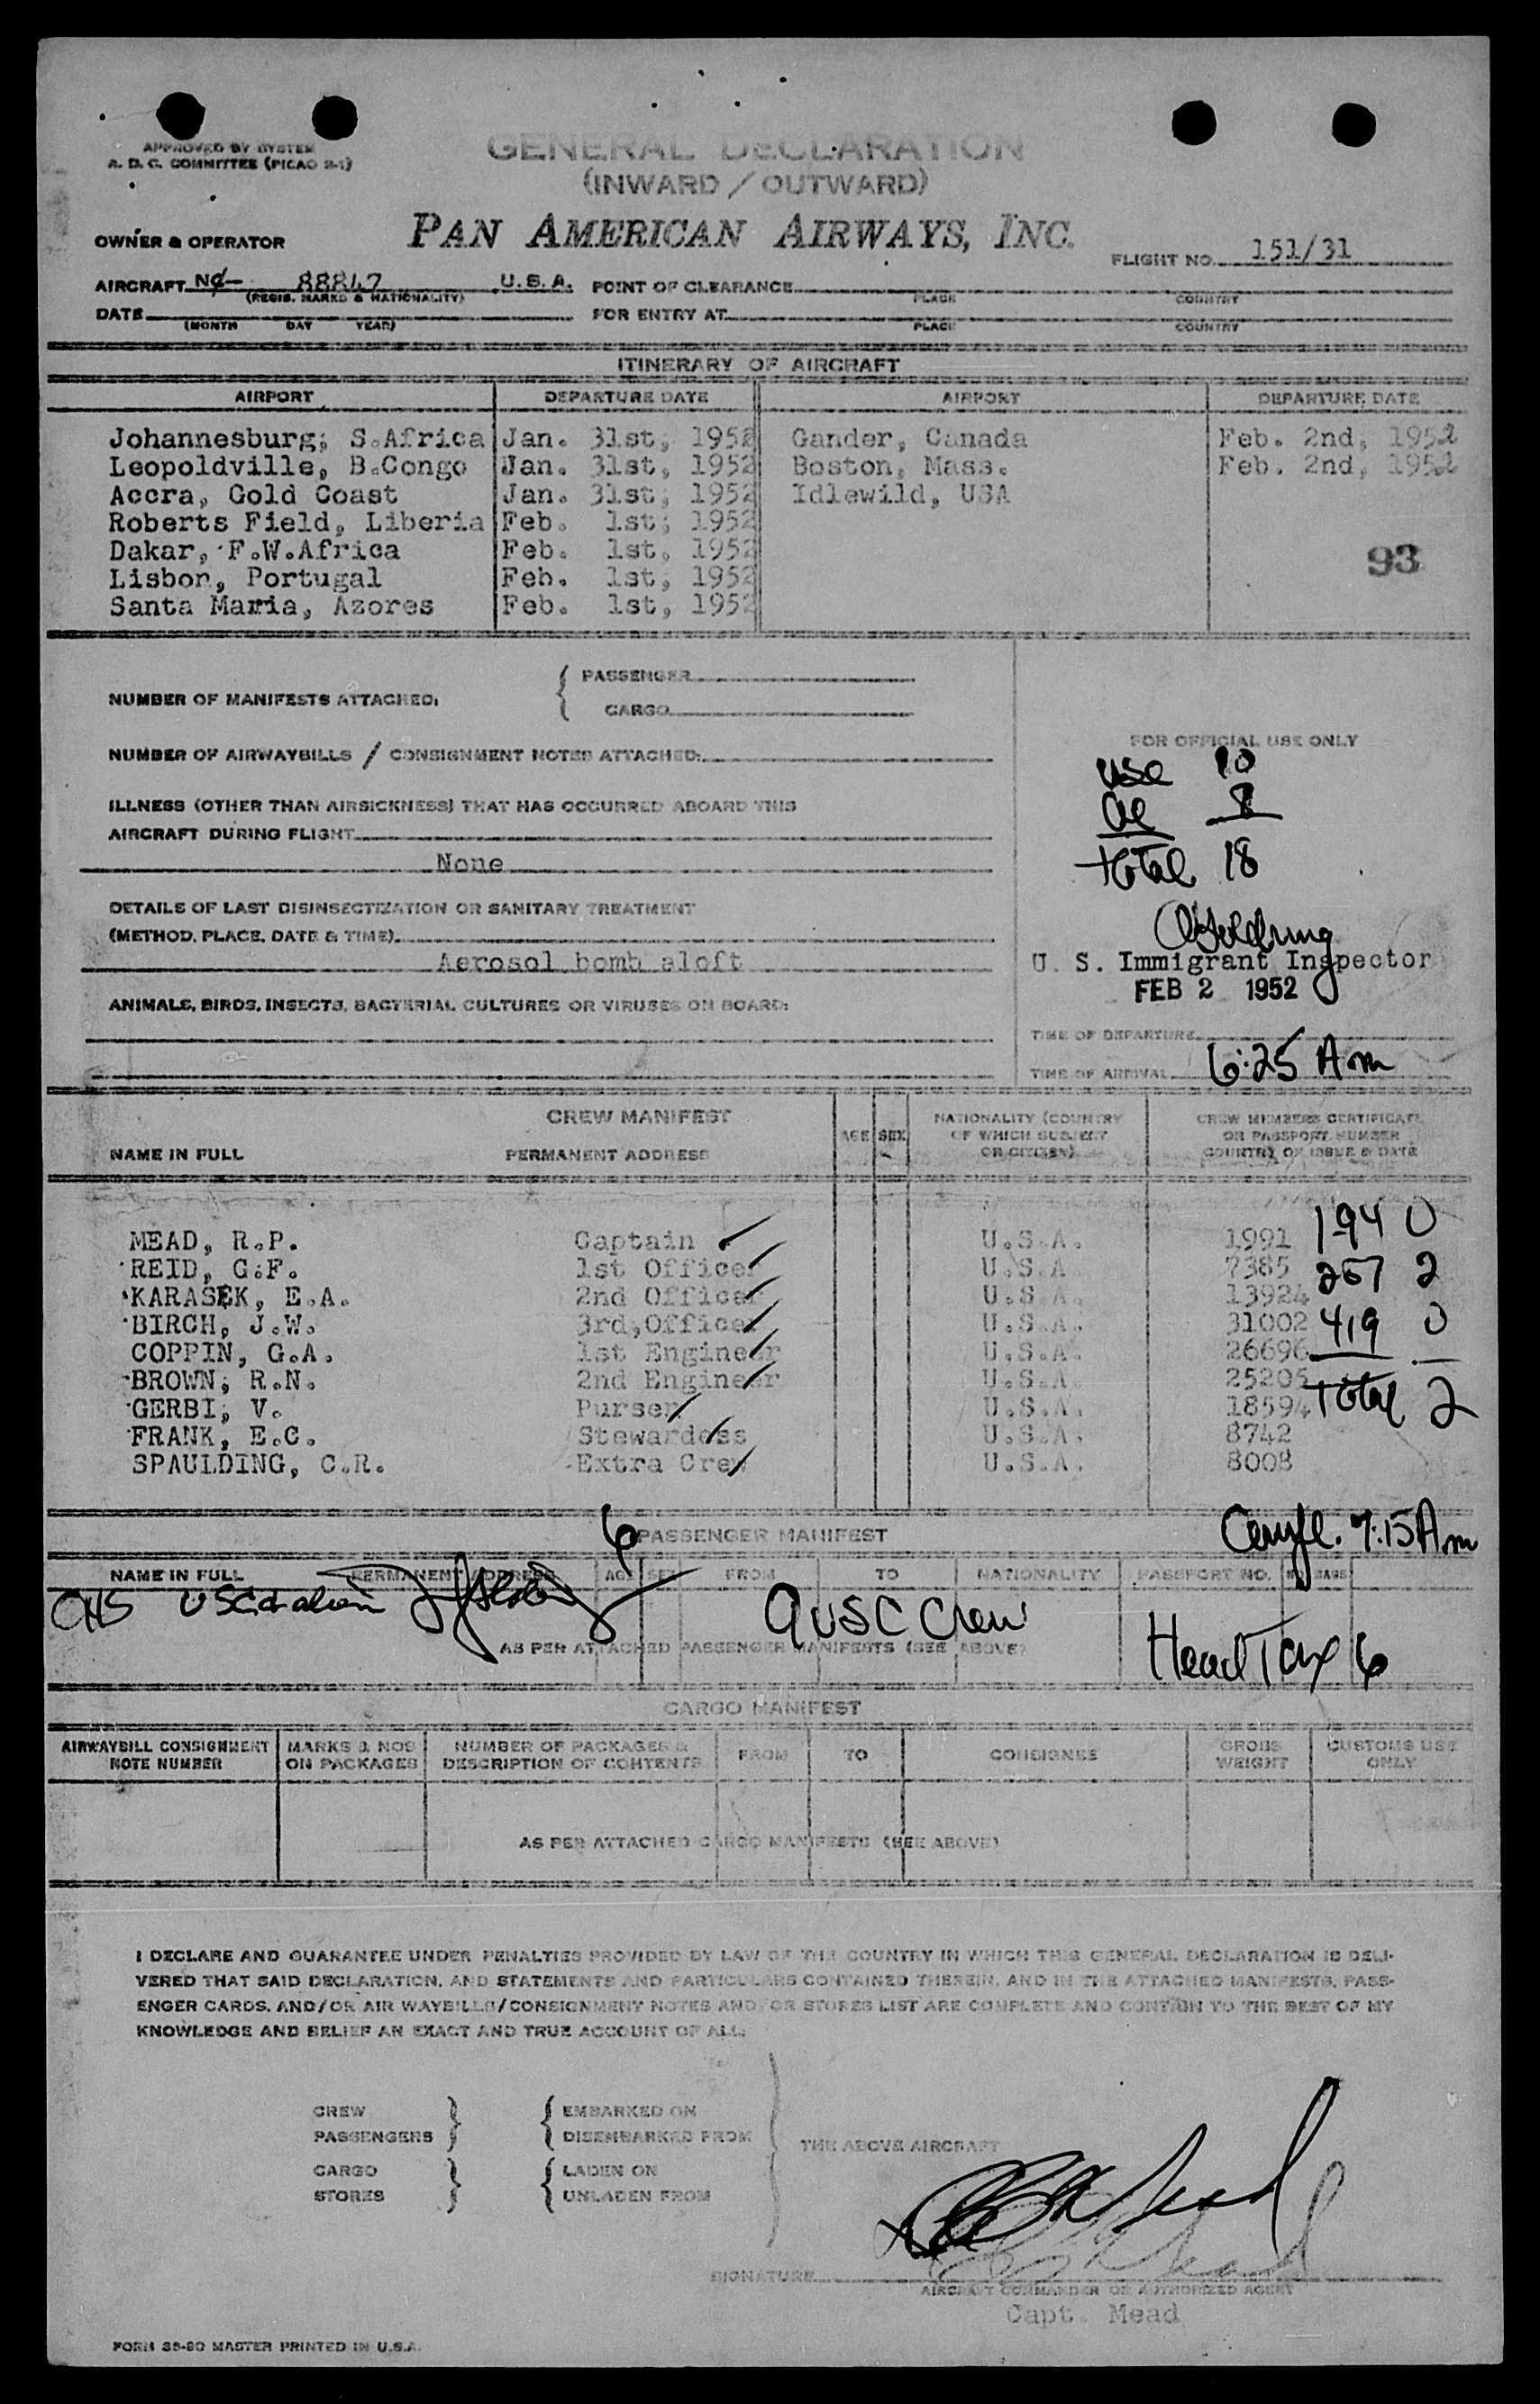 APPROVED BY SYSTEM
A. D. C. COMMITTEE (PICAO 2-1)
GENERAL DECLARATION
(INWARD / OUTWARD)
OWNER & OPERATOR PAN AMERICAN AIRWAYS, INC.
FLIGHT NO. 151/31
AIRCRAFT NC- 88847 U.S.A. POINT OF CLEARANCE
(REGIS. MARKS & NATIONALITY) PLACE COUNTRY
DATE FOR ENTRY AT
(MONTH DAY YEAR) PLACE COUNTRY
ITINERARY OF AIRCRAFT
AIRPORT DEPARTURE DATE AIRPORT DEPARTURE DATE
Johannesburg; S.Africa Jan. 31st, 1952 Gander, Canada Feb. 2nd, 1952
Leopoldville, B.Congo Jan. 31st, 1952 Boston, Mass. Feb. 2nd, 1952
Accra, Gold Coast Jan. 31st, 1952 Idlewild, USA
Roberts Field, Liberia Feb. 1st; 1952
Dakar, F.W.Africa Feb. 1st, 1952
93
Lisbon, Portugal Feb. 1st, 1952
Santa Maria, Azores Feb. 1st, 1952
NUMBER OF MANIFESTS ATTACHED: PASSENGER
CARGO
NUMBER OF AIRWAYBILLS / CONSIGNMENT NOTES ATTACHED:
ILLNESS (OTHER THAN AIRSICKNESS) THAT HAS OCCURRED ABOARD THIS
AIRCRAFT DURING FLIGHT
None
DETAILS OF LAST DISINSECTIZATION OR SANITARY TREATMENT
(METHOD, PLACE, DATE & TIME)
Aerosol bomb aloft
ANIMALS, BIRDS, INSECTS, BACTERIAL CULTURES OR VIRUSES ON BOARD:
FOR OFFICIAL USE ONLY
USC 10
al 8
total 18
U. S. Immigrant Inspector
FEB 2 1952
TIME OF DEPARTURE
TIME OF ARRIVAL 6:25 Am
CREW MANIFEST
NAME IN FULL PERMANENT ADDRESS AGE SEX NATIONALITY (COUNTRY OF WHICH SUBJECT OR CITIZEN) CREW MEMBERS CERTIFICATE OR PASSPORT NUMBER COUNTRY OF ISSUE & DATE
MEAD, R.P. Captain U.S.A. 1991 194 0
REID, G.F. 1st Officer U.S.A. 7385 257 2
KARASEK, E.A. 2nd Officer U.S.A. 13924
BIRCH, J.W. 3rd,Officer U.S.A. 31002 419 0
COPPIN, G.A. 1st Engineer U.S.A. 26696
BROWN; R.N. 2nd Engineer U.S.A. 25205 total 2
GERBI, V. Purser U.S.A. 18594
FRANK, E.C. Stewardess U.S.A. 8742
SPAULDING, C.R. Extra Crew U.S.A. 8008
6 PASSENGER MANIFEST 7:15 Am
NAME IN FULL PERMANENT ADDRESS AGE SEX FROM TO NATIONALITY PASSPORT NO. NO. BAGS
9 USC Crew
AS PER ATTACHED PASSENGER MANIFESTS (SEE ABOVE)
Head Tax 6
CARGO MANIFEST
AIRWAYBILL CONSIGNMENT NOTE NUMBER MARKS & NOS ON PACKAGES NUMBER OF PACKAGES & DESCRIPTION OF CONTENTS FROM TO CONSIGNEE GROSS WEIGHT CUSTOMS USE ONLY
AS PER ATTACHED CARGO MANIFESTS (SEE ABOVE)
I DECLARE AND GUARANTEE UNDER PENALTIES PROVIDED BY LAW OF THE COUNTRY IN WHICH THIS GENERAL DECLARATION IS DELI-
VERED THAT SAID DECLARATION, AND STATEMENTS AND PARTICULARS CONTAINED THEREIN, AND IN THE ATTACHED MANIFESTS, PASS-
ENGER CARDS, AND/OR AIR WAYBILLS/CONSIGNMENT NOTES AND/OR STORES LIST ARE COMPLETE AND CONTAIN TO THE BEST OF MY
KNOWLEDGE AND BELIEF AN EXACT AND TRUE ACCOUNT OF ALL:
CREW EMBARKED ON
PASSENGERS DISEMBARKED FROM
THE ABOVE AIRCRAFT
CARGO LADEN ON
STORES UNLADEN FROM
SIGNATURE
AIRCRAFT COMMANDER OR AUTHORIZED AGENT
Capt. Mead
FORM 35-90 MASTER PRINTED IN U.S.A.